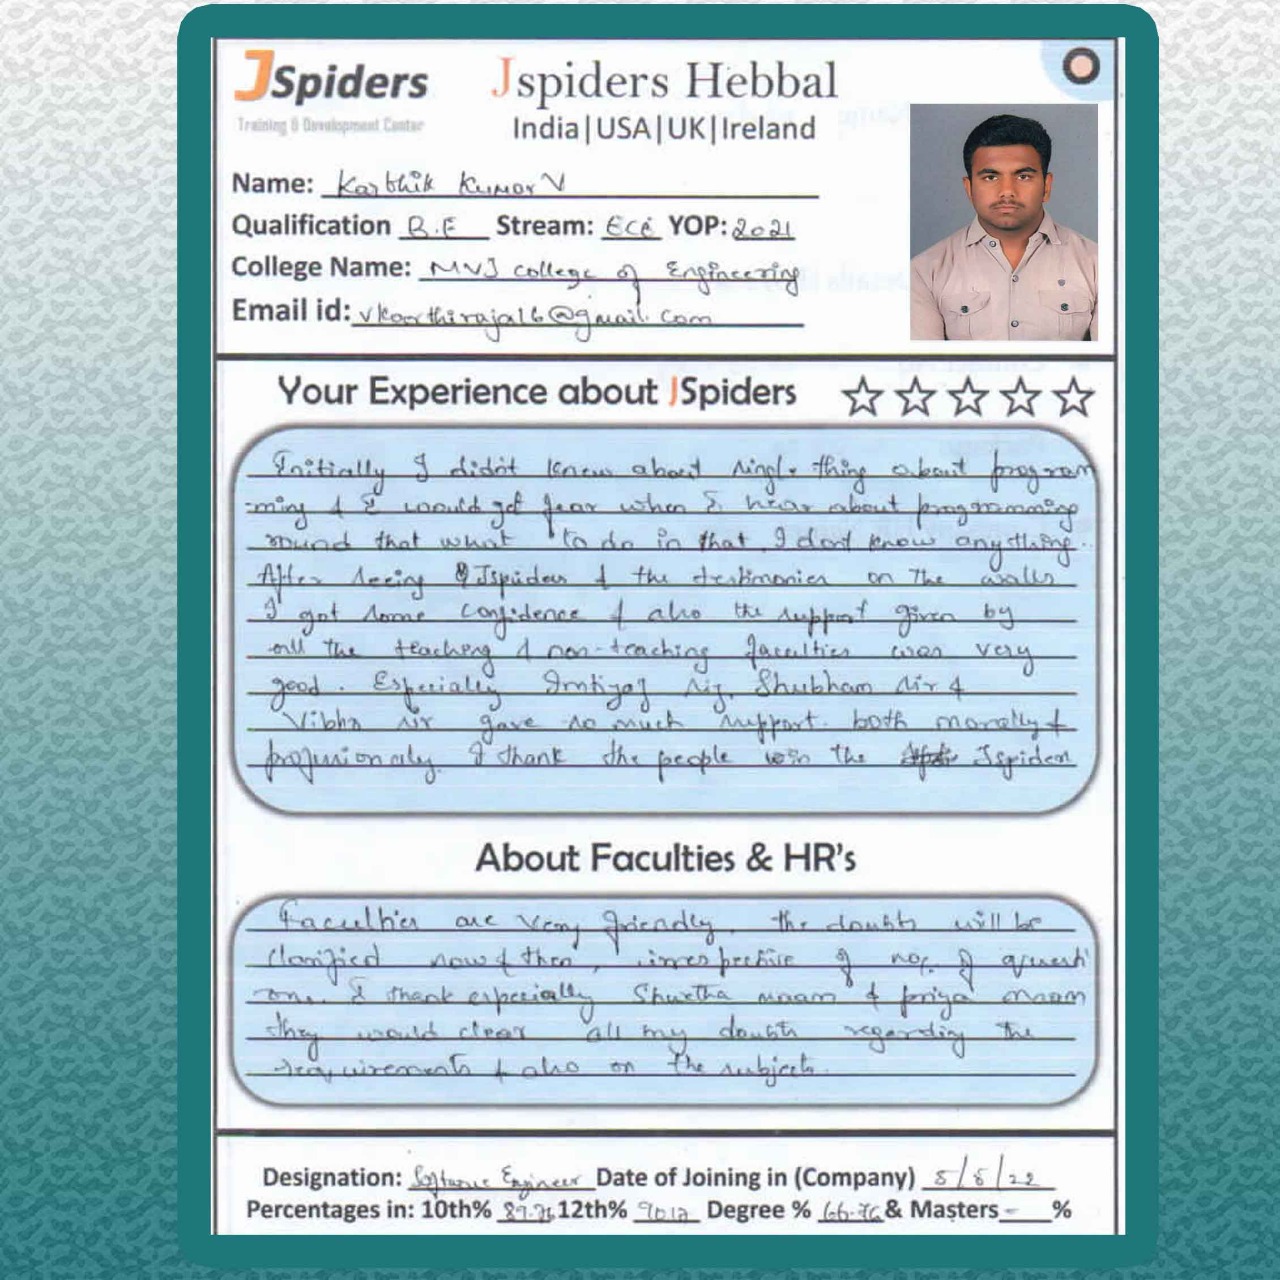 JSpiders
Training & Development Center
Jspiders Hebbal
India|USA|UK|Ireland
Name: Karthik Kumar V
Qualification B.E Stream: ECE YOP: 2021
College Name: MVJ College of Engineering
Email id:
Your Experience about JSpiders
Initially I didn't know about single thing about program
-ming & I would get fear when I hear about programming
round that what to do in that, I dont know anything.
After seeing Jspiders & the testimonies on the walls
I got some confidence & also the support given by
all the teaching & non-teaching faculties was very
good. Especially Imtiyaj sir, Shubham sir &
Vibha sir gave so much support both morally &
professionally. I thank the people in the Jspiders
About Faculties & HR's
Faculties are very friendly, the doubts will be
clarified now & then, irrespective of no. of questi
ons. I thank especially maam & priya maam
they would clear all my doubts regarding the
requirements & also on the subjects.
Designation: Software Engineer Date of Joining in (Company)
Percentages in: 10th% 12th% Degree % 66.76 & Masters - %